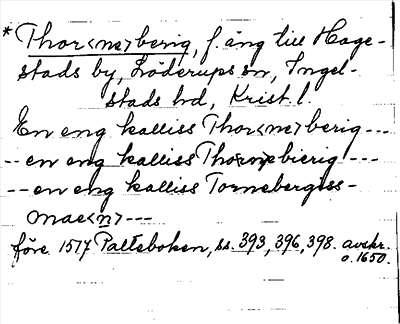 * Thor<ne>berig, f. äng till Hage-
stads by, Löderups sn, Ingel-
stads hd, Krist. l.
En eng kalliss Thor<ne>berig ---
-- en eng kalliss Thor<ne>bierig ---
-- en eng kalliss Tornebergss-
mae<n> ---
före 1517 Palteboken, ss. 393, 396, 398. avskr.
o. 1650.